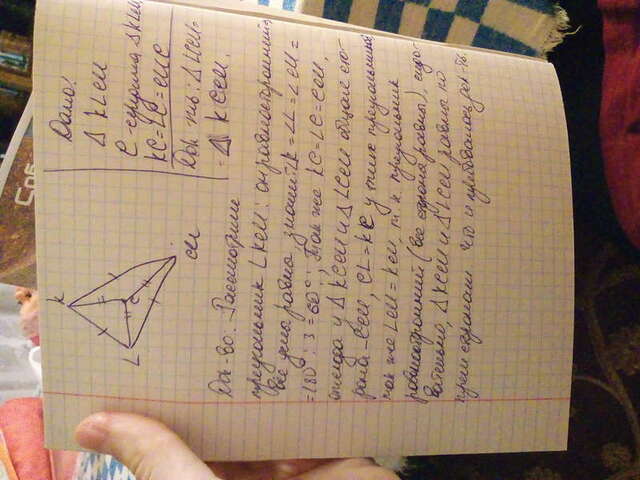 Дано:
Δ KLM
C - середина Δ KLM
KC = LC = MC
Док-ть: Δ LCM =
= Δ KCM.
K
L
C
M
Док-во: Рассмотрим
треугольник LKM: он равносторонний,
все углы равны значит ∠K = ∠L = ∠M =
= 180° : 3 = 60°. Так же KC = LC = CM,
отсюда у Δ KCM и Δ LCM общая сто-
рона - CM, CL = KC у них треугольник
так же LM = KM, т. к треугольник
равносторонний (все стороны равны), следо-
вательно, Δ KCM и Δ LCM равны по
трем сторонам что и требовалось